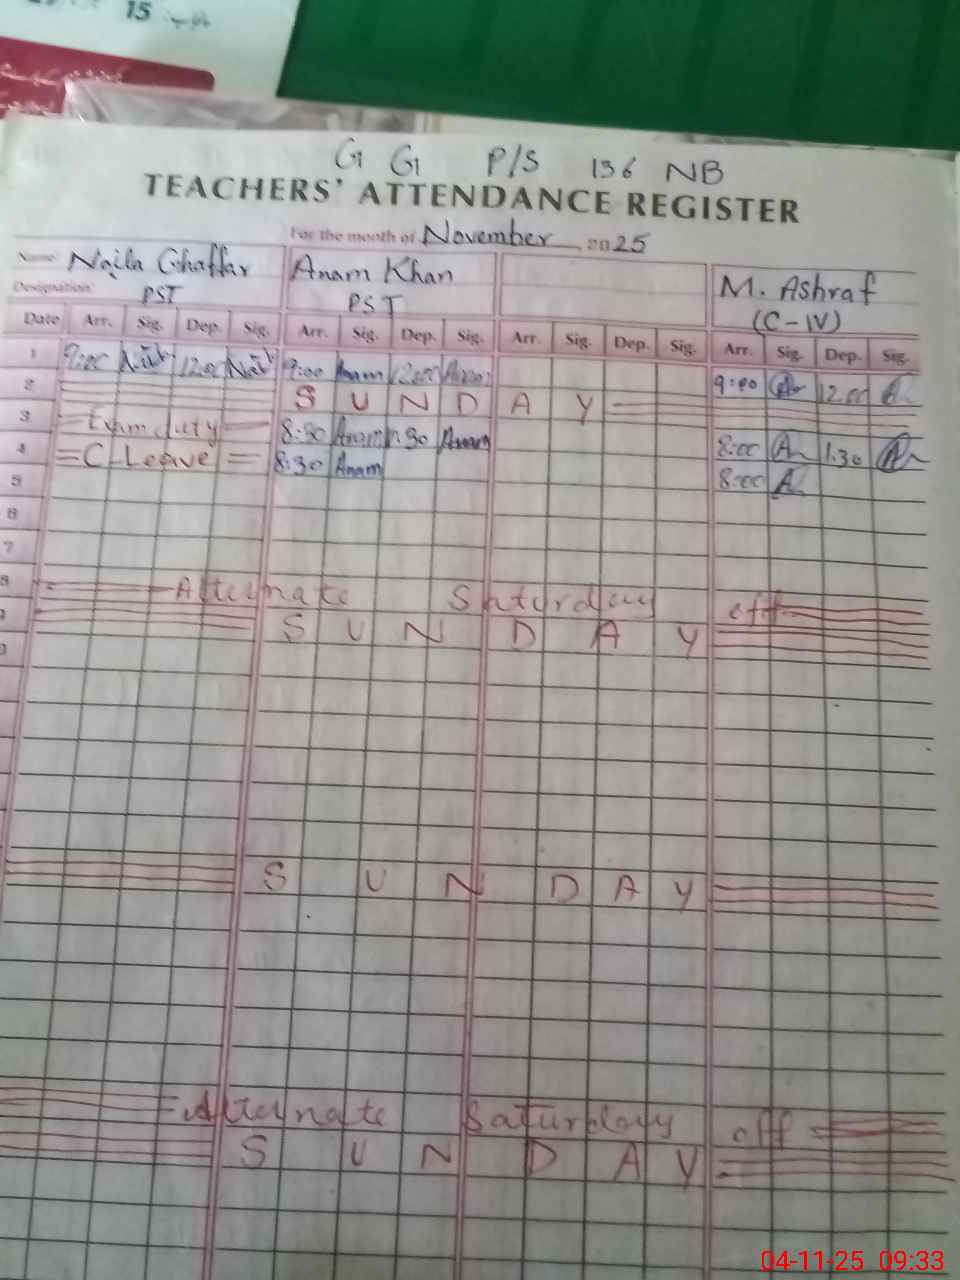 15
G G P/S 136 NB
TEACHERS' ATTENDANCE REGISTER
For the month of November 2025
Name: Naila Ghaffar Anam Khan M. Ashraf
Designation: PST PST (C-IV)
Date Arr. Sig. Dep. Sig. Arr. Sig. Dep. Sig. Arr. Sig. Dep. Sig. Arr. Sig. Dep. Sig.
1 9:00 12:00 9:00 Anam 12:00 Anam 9:00 12:00
2 S U N D A Y
3 Exam duty 8:30 Anam 1:30 Anam 8:00 1:30
4 C Leave 8:30 Anam 8:00
5
6
7
8 Alternate Saturday off
S U N D A Y
S U N D A Y
Alternate Saturday off
S U N D A Y
04-11-25 09:33